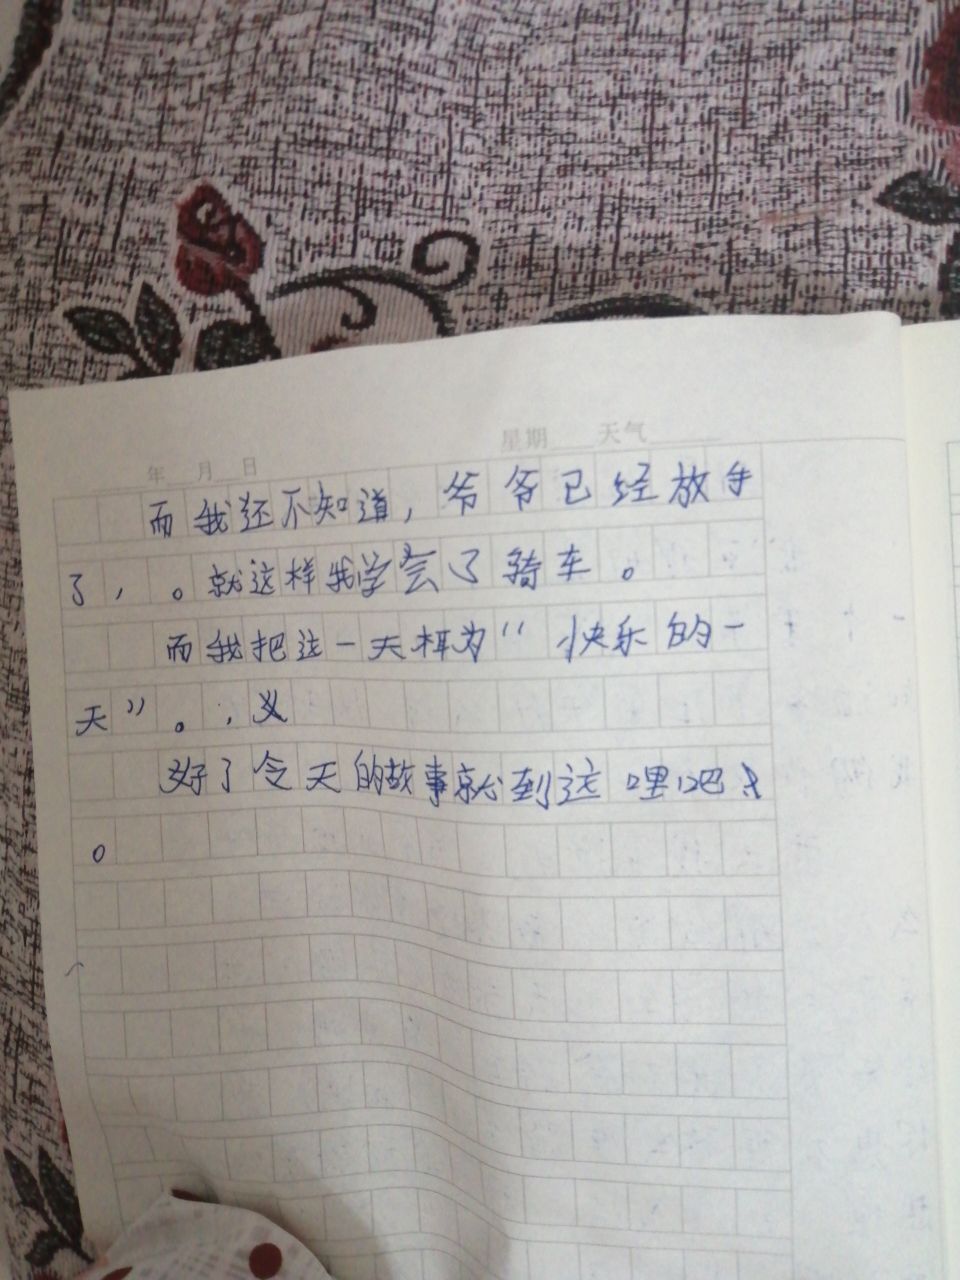 星期 天气
年 月 日
而我还不知道，爷爷已经放手
了，。就这样我学会了骑车。
而我把这一天称为“快乐的一
天”。，义
好了今天的故事就到这哩吧
。